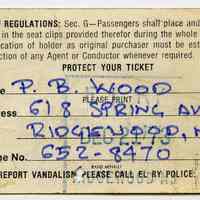 REGULATIONS: Sec. G—Passengers shall place and
in the seat clips provided therefor during the whole
ocation of holder as original purchaser must be esta
ction of any Agent or Conductor whenever required.
PROTECT YOUR TICKET
e P. B. WOOD
PLEASE PRINT
ess 618 SPRING AV
RIDGEWOOD, N
ne No. 652-8470
REPORT VANDALISM PLEASE CALL EL RY POLICE: